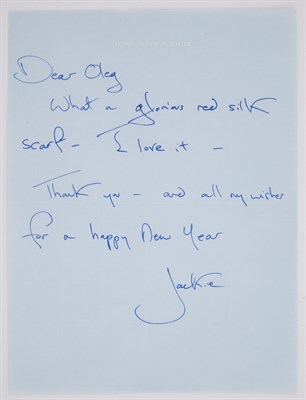 Dear Oleg
What a glorious red silk
scarf — I love it —
Thank you — and all my wishes
for a happy New Year
Jackie